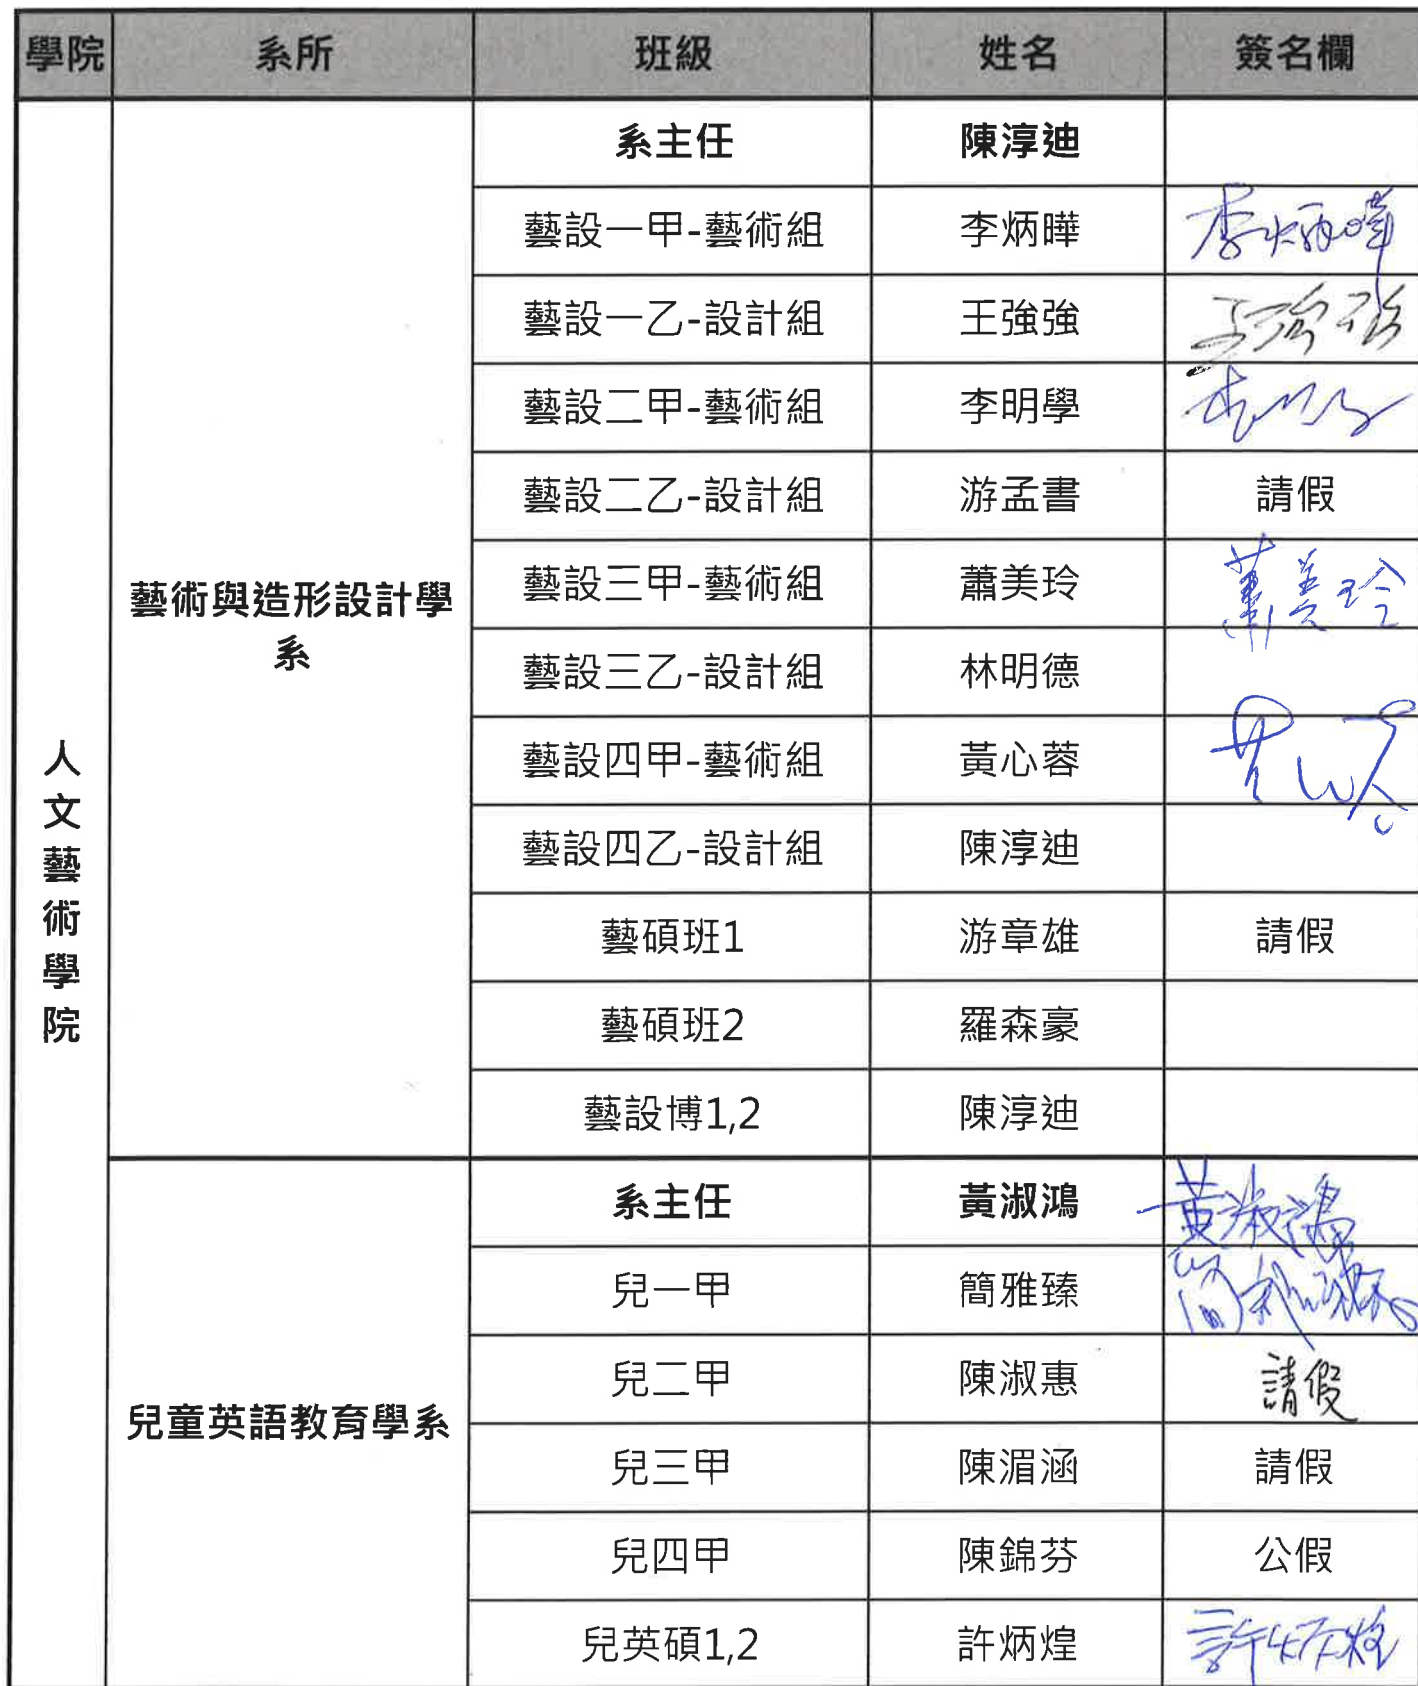 學院 系所 班級 姓名 簽名欄
人文藝術學院
藝術與造形設計學
系
系主任 陳淳迪
藝設一甲-藝術組 李炳曄 李炳曄
藝設一乙-設計組 王強強 王強強
藝設二甲-藝術組 李明學
藝設二乙-設計組 游孟書 請假
藝設三甲-藝術組 蕭美玲 蕭美玲
藝設三乙-設計組 林明德
藝設四甲-藝術組 黃心蓉
藝設四乙-設計組 陳淳迪
藝碩班1 游章雄 請假
藝碩班2 羅森豪
藝設博1,2 陳淳迪
兒童英語教育學系
系主任 黃淑鴻 黃淑鴻
兒一甲 簡雅臻 簡雅臻
兒二甲 陳淑惠 請假
兒三甲 陳湄涵 請假
兒四甲 陳錦芬 公假
兒英碩1,2 許炳煌 許炳煌